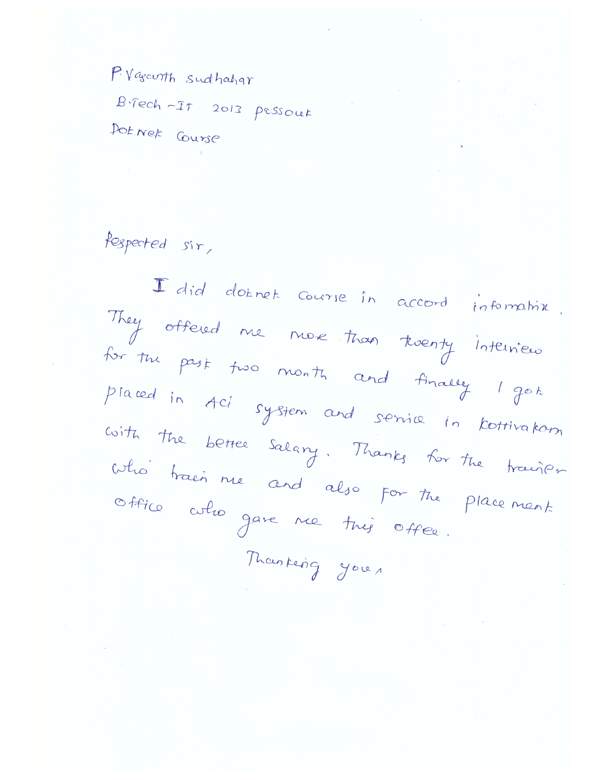 P. Vasanth Sudhahar
B.Tech - IT 2013 passout
Dot Net Course
Respected sir,
I did dotnet course in accord infomatrix.
They offered me more than twenty interview
for the past two month and finally I got
placed in Aci system and service in kottivakam
with the better salary. Thanks for the trainer
who train me and also for the placement
office who gave me this offer.
Thanking you,